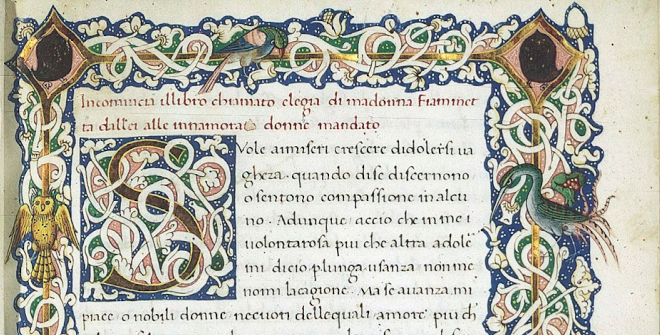 Incomincia illibro chiamato elegia di madonna Fiammet
ta dallei alle innamorate donne mandato
Suole amiseri crescere didolersi ua
gheza. quando dise discernono
o sentono compassione in alcu
no. Adunque accio che in me i
uolontarosa piu che altra adole
mi dicio plunga usanza non me
nomi lacagione. Ma se auanza. mi
piace o nobili donne ne cuori dellequali amore piu ch